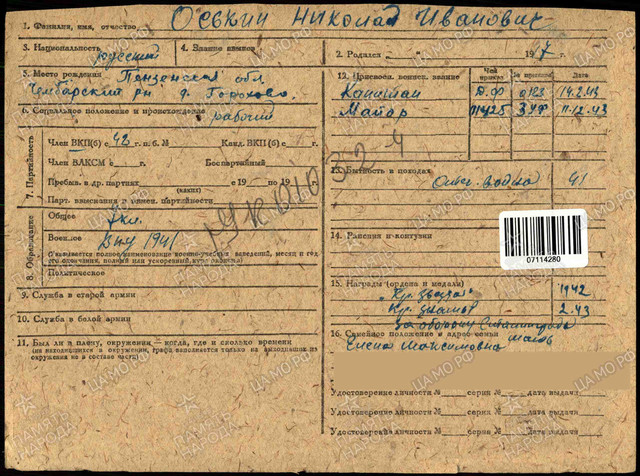 1. Фамилия, имя, отчество Оськин Николай Иванович
3. Национальность русский
4. Знание языков
2. Родился „ “ 19 7 г.
5. Место рождения Пензенская обл
Чембарский рн д. Горохово.
6. Социальное положение и происхождение
рабочий
7. Партийность
Член ВКП(б) с 42 г. п. б. № Канд. ВКП(б) с г.
Член ВЛКСМ с г. Беспартийный
Пребыв. в др. партиях с 19 по 19 г.
(каких)
Парт. взыскания и замеч. партийности
8. Образование
Общее 7 кл.
Военное
1941
(Указывается полное наименование военно-учебных заведений, месяц и год
его окончания, полный или ускоренный курс окончил)
Политическое
9. Служба в старой армии
10. Служба в белой армии
11. Был ли в плену, окружении — когда, где и сколько времени
(на находившихся в окружении, графа заполняется только на выходивших из
окружения не в составе части)
12. Присвоен. воинск. звание
Чей приказ
№ приказа
Дата
Капитан Д.Ф 0123 14.2.43
Майор 11425 ЗУФ 11.12.43
13. Бытность в походах
Отеч. война 41
14. Ранения и контузии
07114280
15. Награды (ордена и медали)
„Кр. Звезда“ 1942
Кр. Знамя 2.43
За оборону Сталинграда
16. Семейное положение и адрес семьи мать
Елена Максимовна
Удостоверение личности № серия № дата выдачи
Удостоверение личности № серия № дата выдачи
Удостоверение личности № серия № дата выдачи
ПАМЯТЬ НАРОДА
ЦАМО.РФ